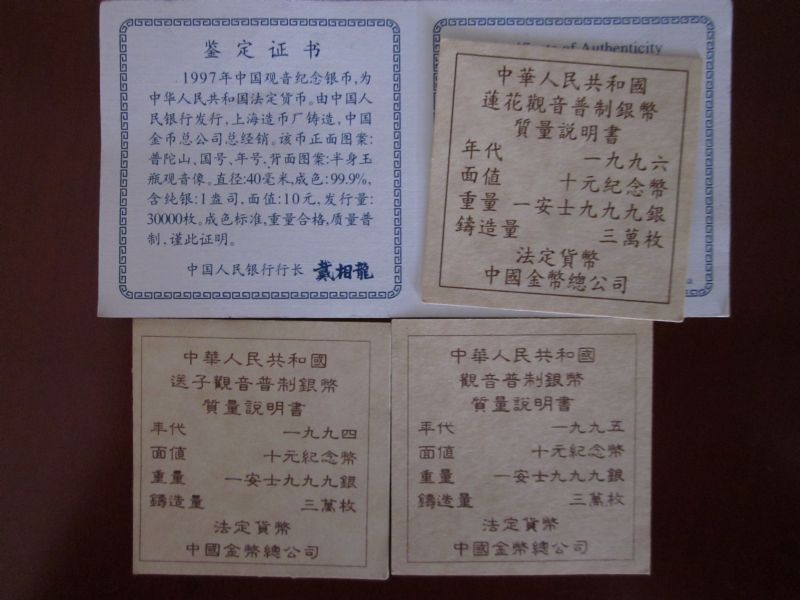 鉴定证书
1997年中国观音纪念银币,为
中华人民共和国法定货币。由中国人
民银行发行,上海造币厂铸造,中国
金币总公司总经销。该币正面图案:
普陀山、国号、年号,背面图案:半身玉
瓶观音像。直径:40毫米,成色:99.9%,
含纯银:1盎司,面值:10元,发行量:
30000枚。成色标准,重量合格,质量普
制,谨此证明。
中国人民银行行长 戴相龍
of Authenticity
中華人民共和國
蓮花觀音普制銀幣
質量說明書
年代 一九九六
面值 十元紀念幣
重量 一安士九九九銀
鑄造量 三萬枚
法定貨幣
中國金幣總公司
中華人民共和國
送子觀音普制銀幣
質量說明書
年代 一九九四
面值 十元紀念幣
重量 一安士九九九銀
鑄造量 三萬枚
法定貨幣
中國金幣總公司
中華人民共和國
觀音普制銀幣
質量說明書
年代 一九九五
面值 十元紀念幣
重量 一安士九九九銀
鑄造量 三萬枚
法定貨幣
中國金幣總公司